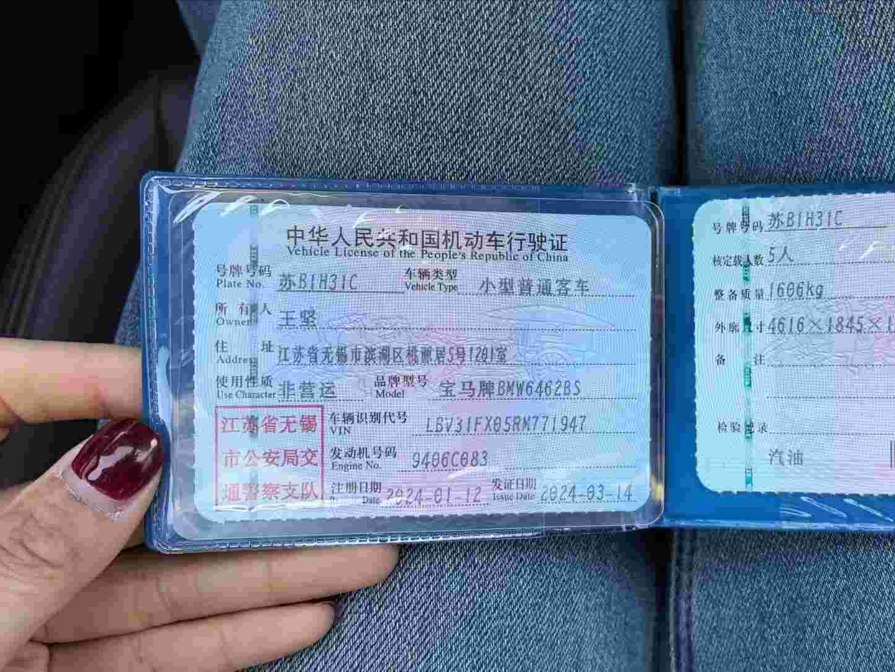 中华人民共和国机动车行驶证
Vehicle License of the People's Republic of China
号牌号码 苏B1H31C 车辆类型 小型普通客车
Plate No. Vehicle Type
所有人 王坚
Owner
住址 江苏省无锡市滨湖区桃丽居5号1201室
Address
使用性质 非营运 品牌型号 宝马牌BMW6462BS
Use Character Model
江苏省无锡
市公安局交
通警察支队
车辆识别代号 LBV31FX05RM771947
VIN
发动机号码 9406C083
Engine No.
注册日期 2024-01-12 发证日期 2024-03-14
Date Issue Date
号牌号码 苏B1H31C
核定载人数 5人
整备质量 1606kg
外廓尺寸 4616×1845×1
备注
检验记录
汽油